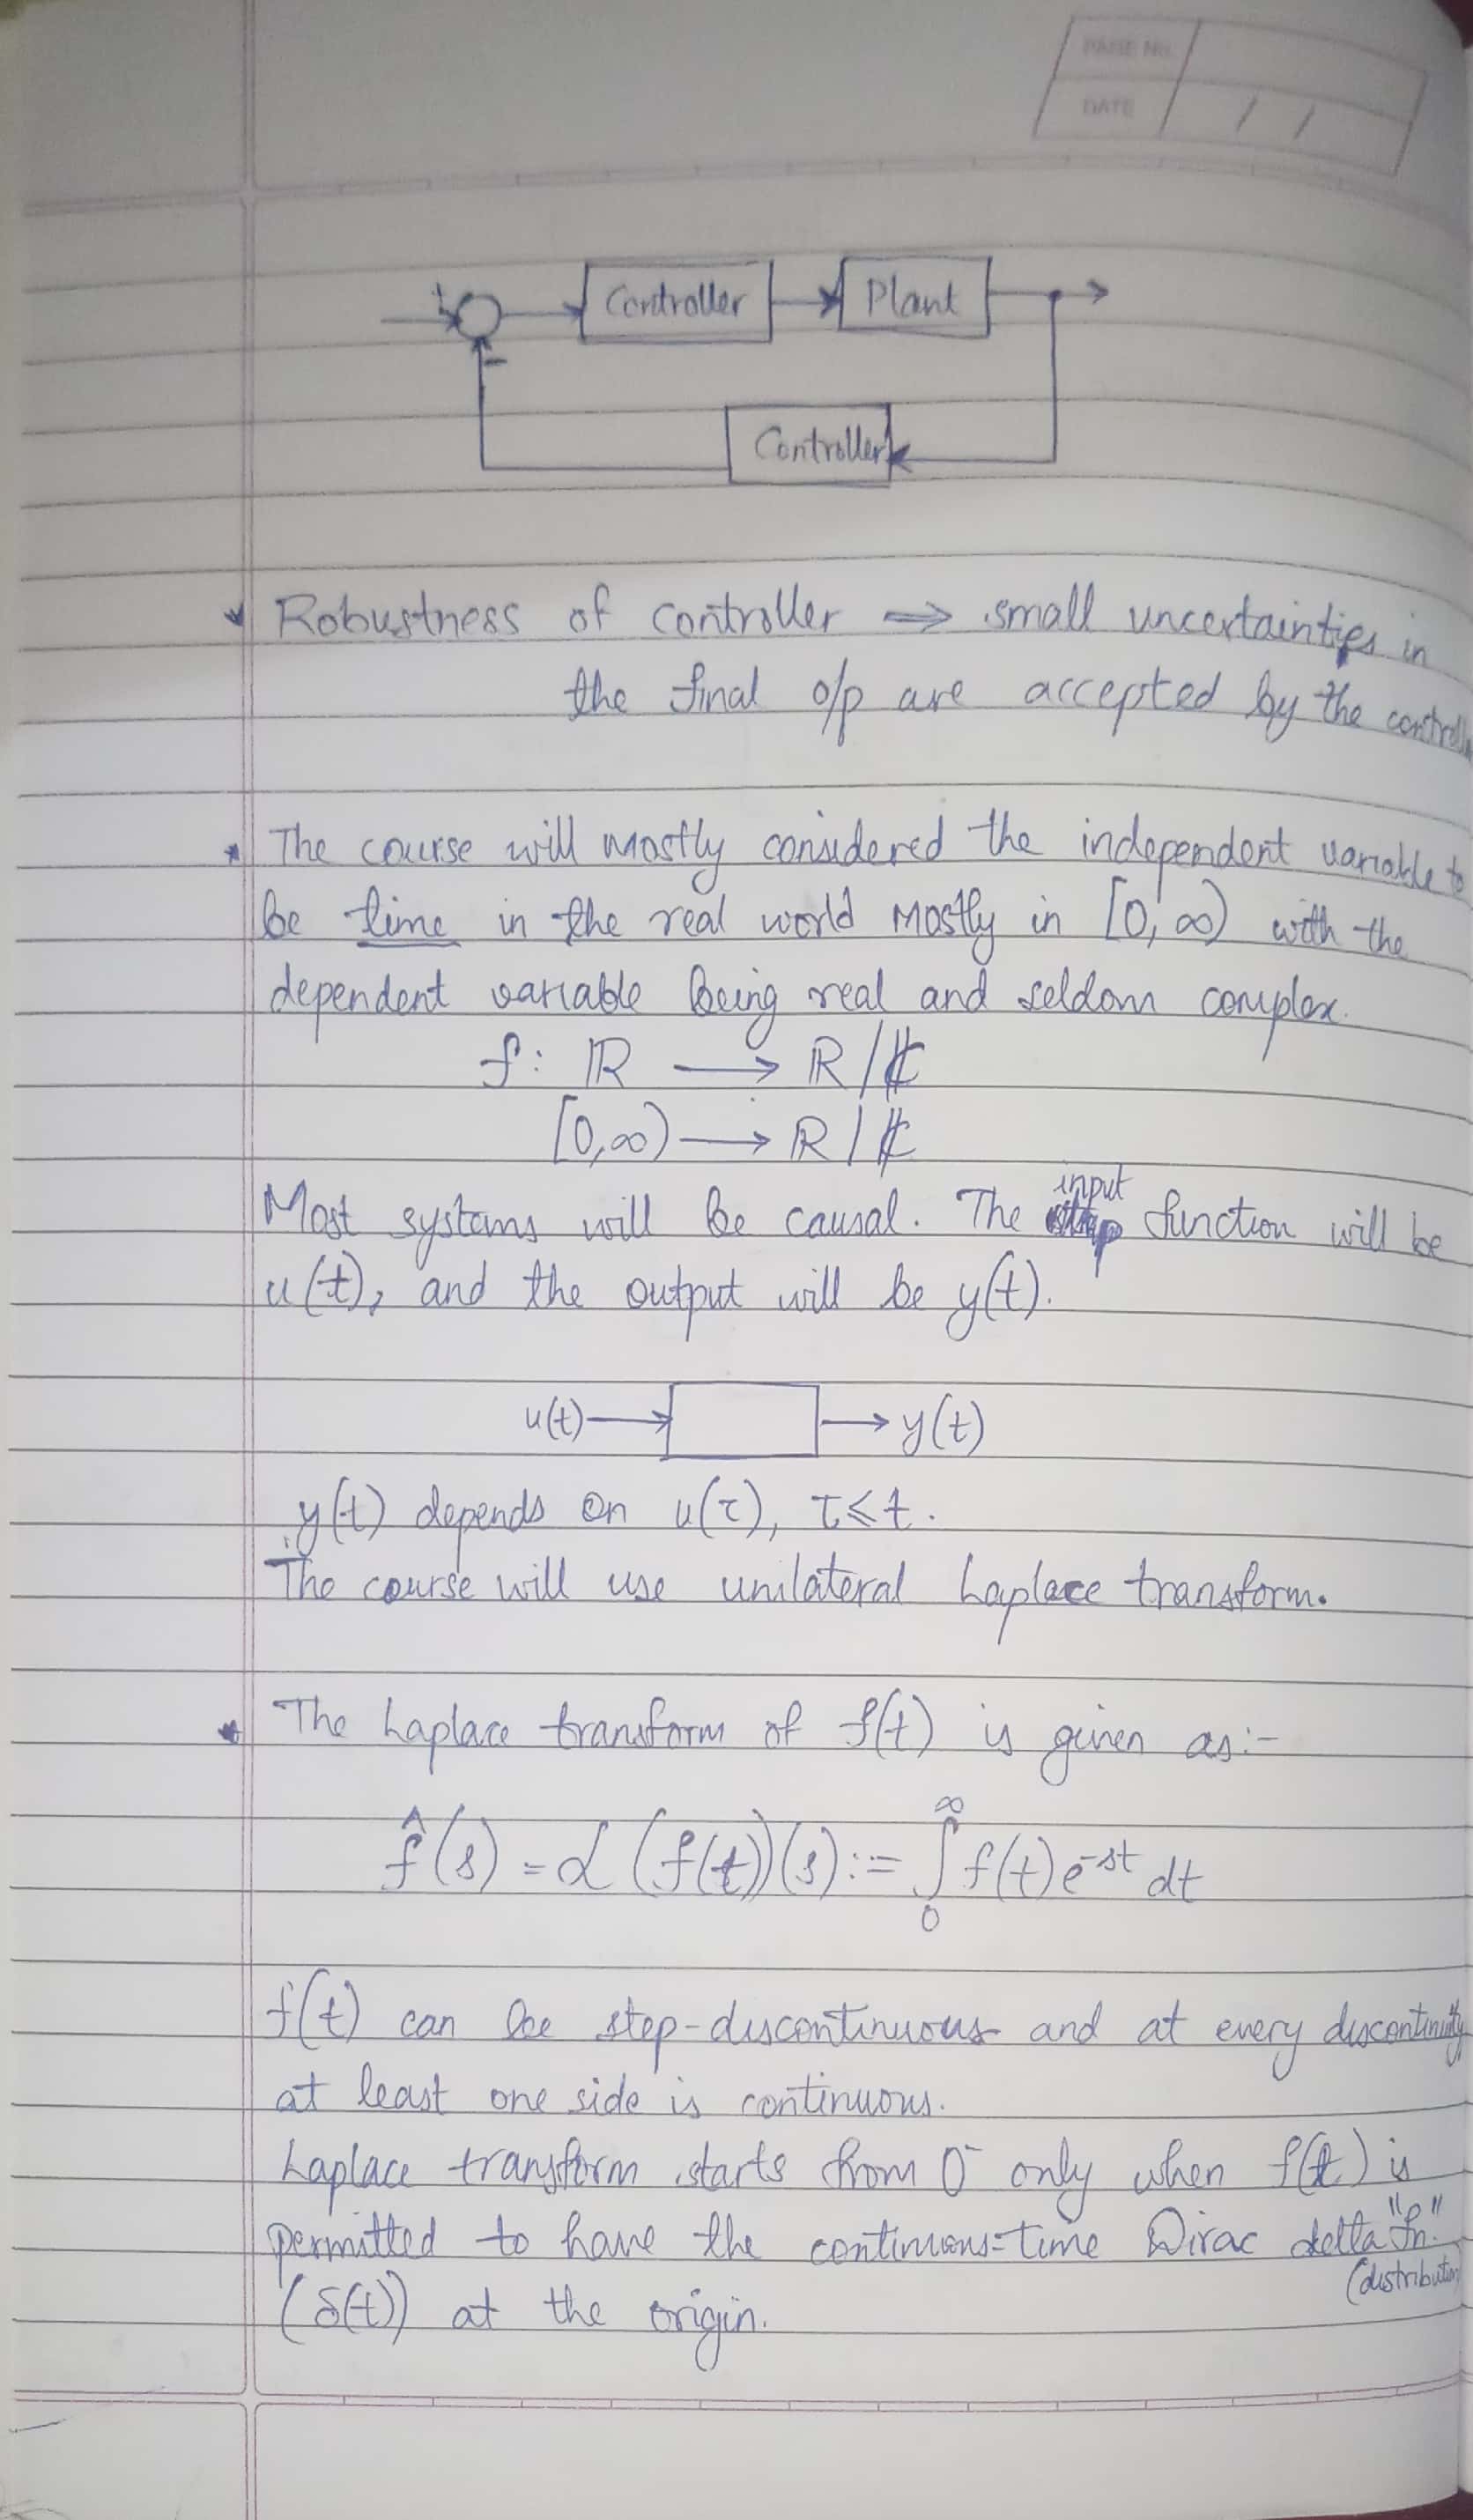 PAGE No.
DATE / /
+ Controller Plant
-
Controller
* Robustness of controller ⇒ small uncertainties in
the final o/p are accepted by the
* The course will mostly considered the independent variable to
be time in the real world mostly in [0, ∞) with the
dependent variable being real and seldom complex.
f: ℝ → ℝ/ℂ
[0,∞) → ℝ/ℂ
input
Most systems will be causal. The function will be
u(t), and the output will be y(t).
u(t) → → y(t)
y(t) depends on u(τ), τ≤t.
The course will use unilateral Laplace transform.
* The Laplace transform of f(t) is given as:-
f̂(s) = ℒ(f(t))(s) := ∫₀^∞ f(t) e^-st dt
f(t) can be step-discontinuous and at every discontinuity
at least one side is continuous.
Laplace transform starts from 0⁻ only when f(t) is
permitted to have the continuous-time Dirac delta "fn."
(distribution
(δ(t)) at the origin.